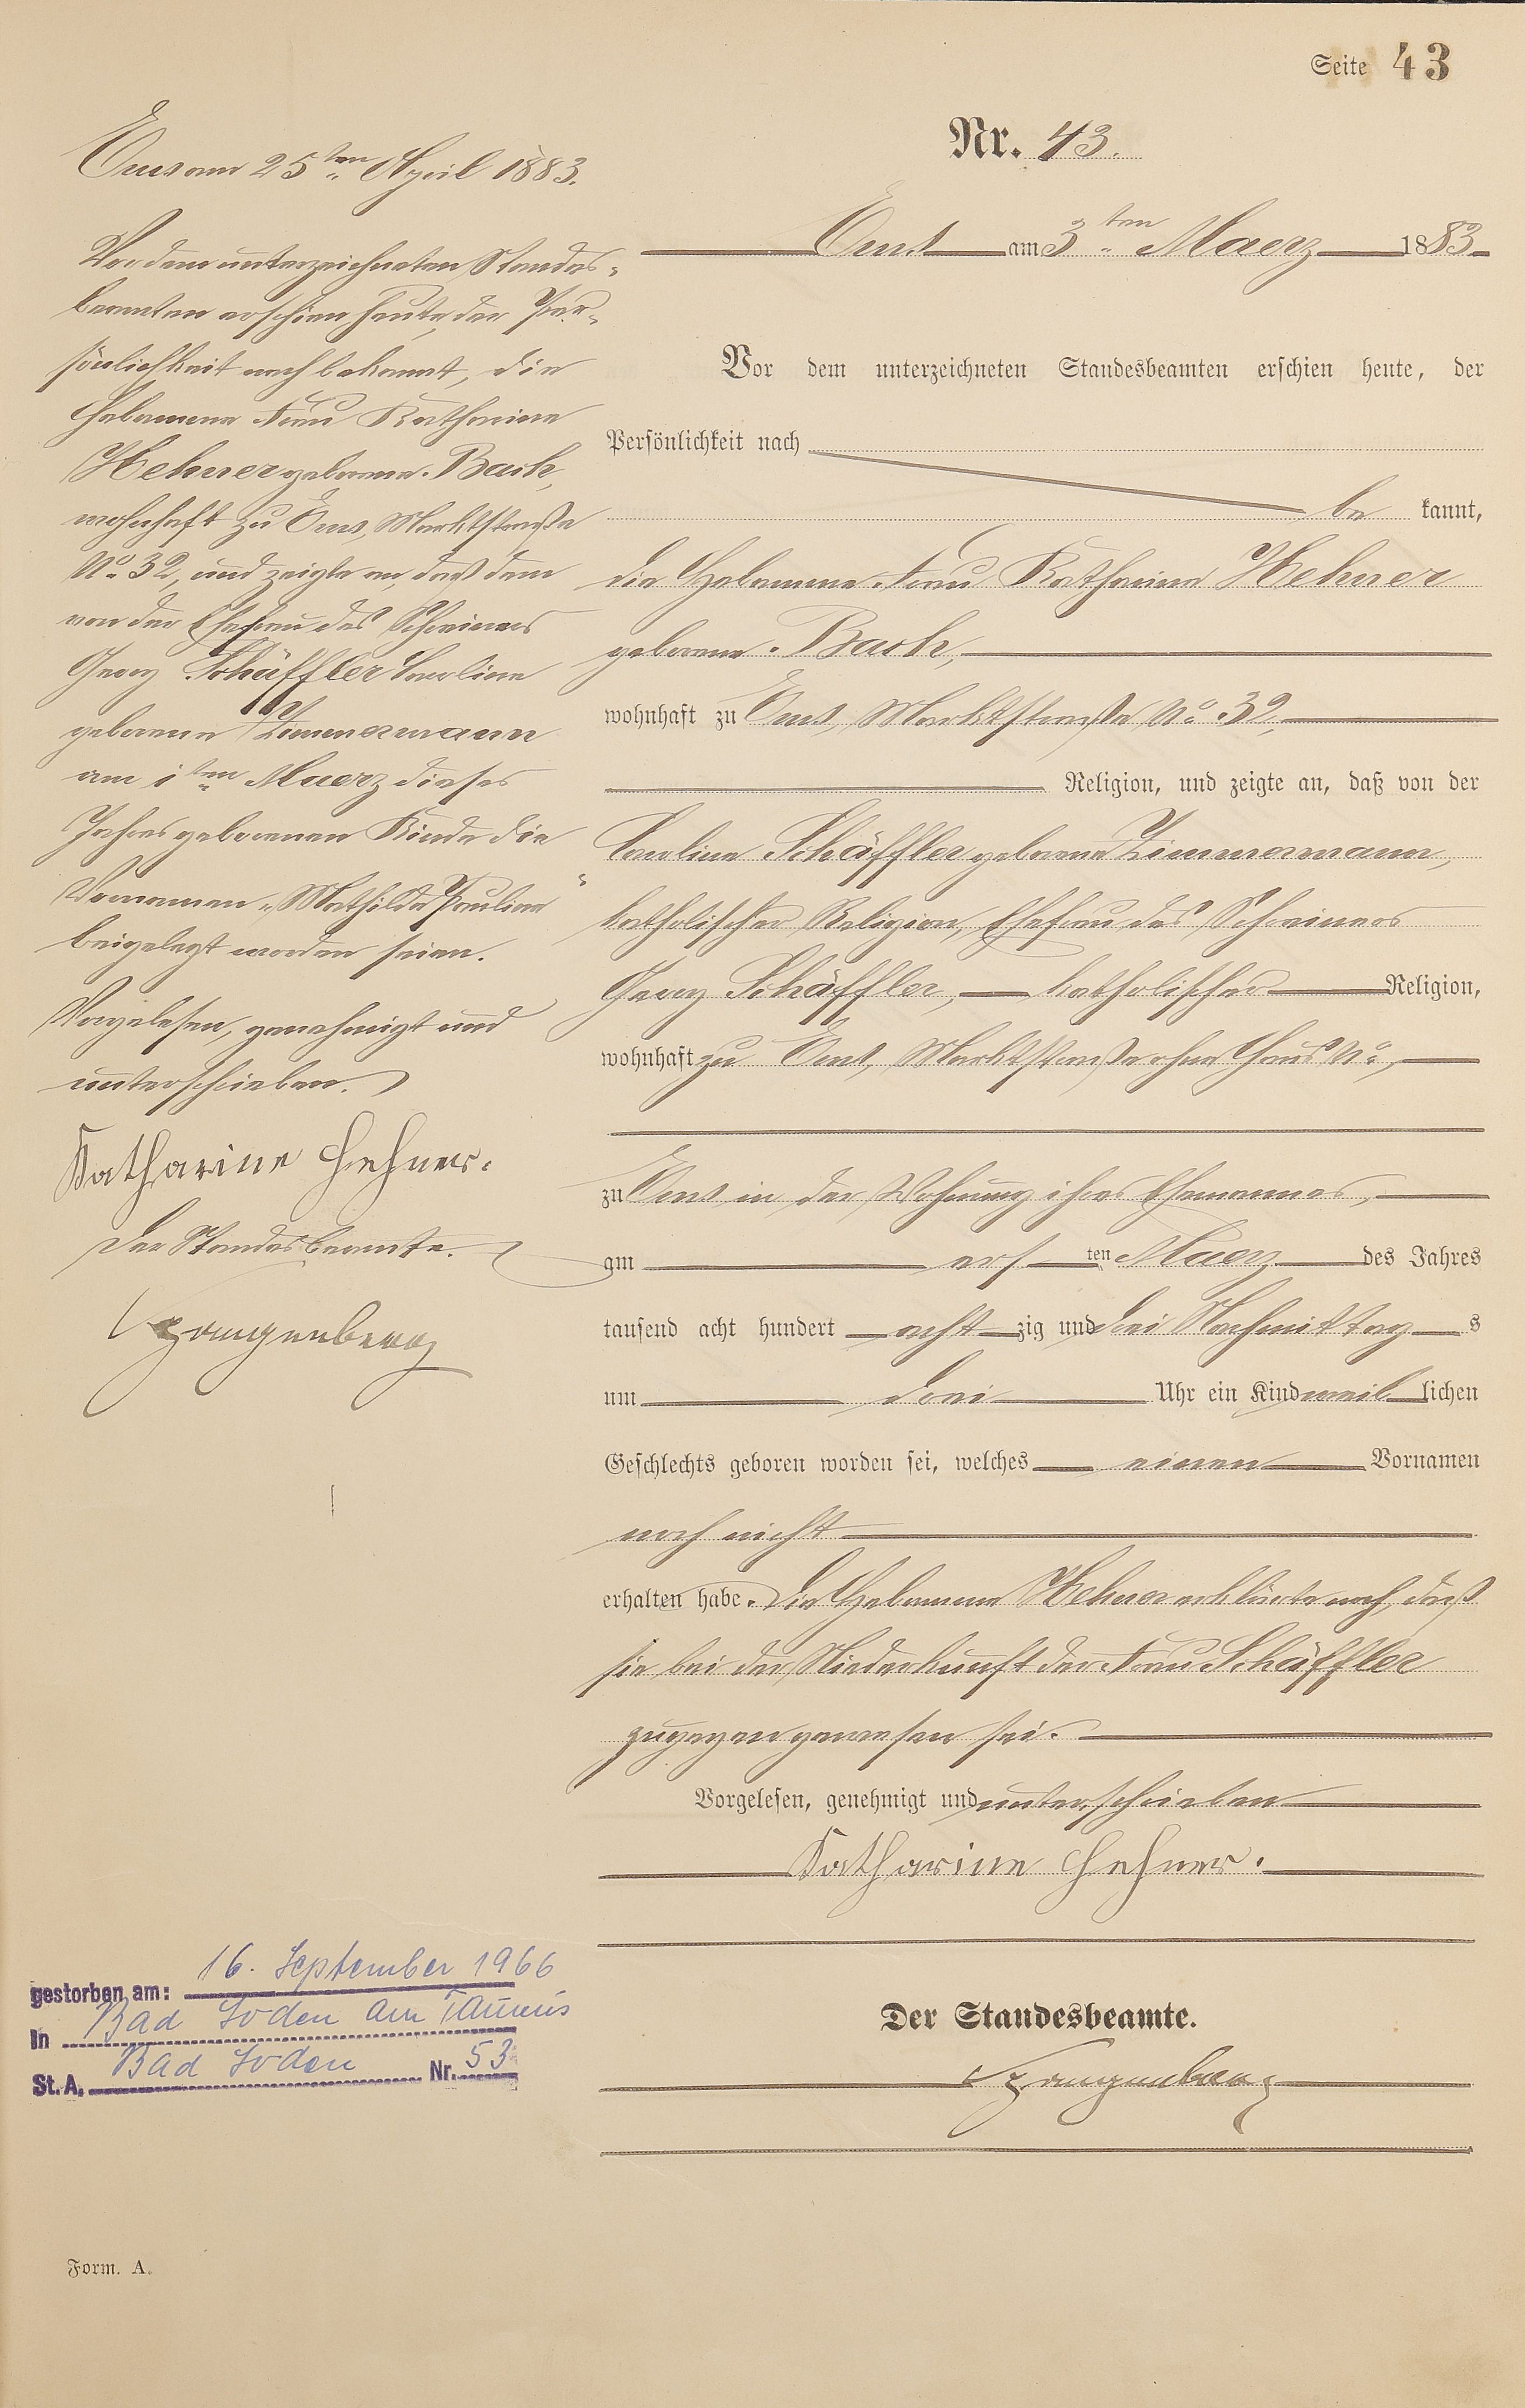 Seite 43
Nr. 43.
Ems am 3ten Maerz 1883
Vor dem unterzeichneten Standesbeamten erschien heute, der
Persönlichkeit nach
be kannt,
die Hebamme Frau Katharina Hehner
geborene Bach,
wohnhaft zu Ems, Marktstraße No 32,
Religion, und zeigte an, daß von der
Caroline Schäffler geborene Zimmermann,
katholischer Religion, Ehefrau des Schreiners
Georg Schäffler, katholischer Religion,
wohnhaft zu Ems, Marktstraße ohne Haus No,
zu Ems in der Wohnung ihres Ehemannes,
am ers ten Maerz des Jahres
tausend acht hundert acht zig und drei Nachmittag s
um drei Uhr ein Kind weib lichen
Geschlechts geboren worden sei, welches einen Vornamen
noch nicht
erhalten habe. Die Hebamme Hehner erklärte noch, daß
sie bei der Niederkunft der Frau Schäffler
zugegen gewesen sei.
Vorgelesen, genehmigt und unterschrieben
Katharine Hehner.
Der Standesbeamte.
Spangenberg
Ems am 25ten April 1883.
Vor dem unterzeichneten Standes-
beamten erschien heute, der Per-
sönlichkeit nach bekannt, die
Hebamme Frau Katharina
Hehner geborene Bach,
wohnhaft zu Ems, Marktstraße
No 32, und zeigte an, daß dem
von der Ehefrau des Schreiners
Georg Schäffler Caroline
geborene Zimmermann
am 1ten Maerz dieses
Jahres geborenen Kinde die
Vornamen „Mathilde Pauline“
beigelegt worden seien.
Vorgelesen, genehmigt und
unterschrieben.
Katharine Hehner.
Der Standesbeamte.
Spangenberg
gestorben am: 16. September 1966
in Bad Soden am Taunus
St. A. Bad Soden Nr. 53
Form. A.